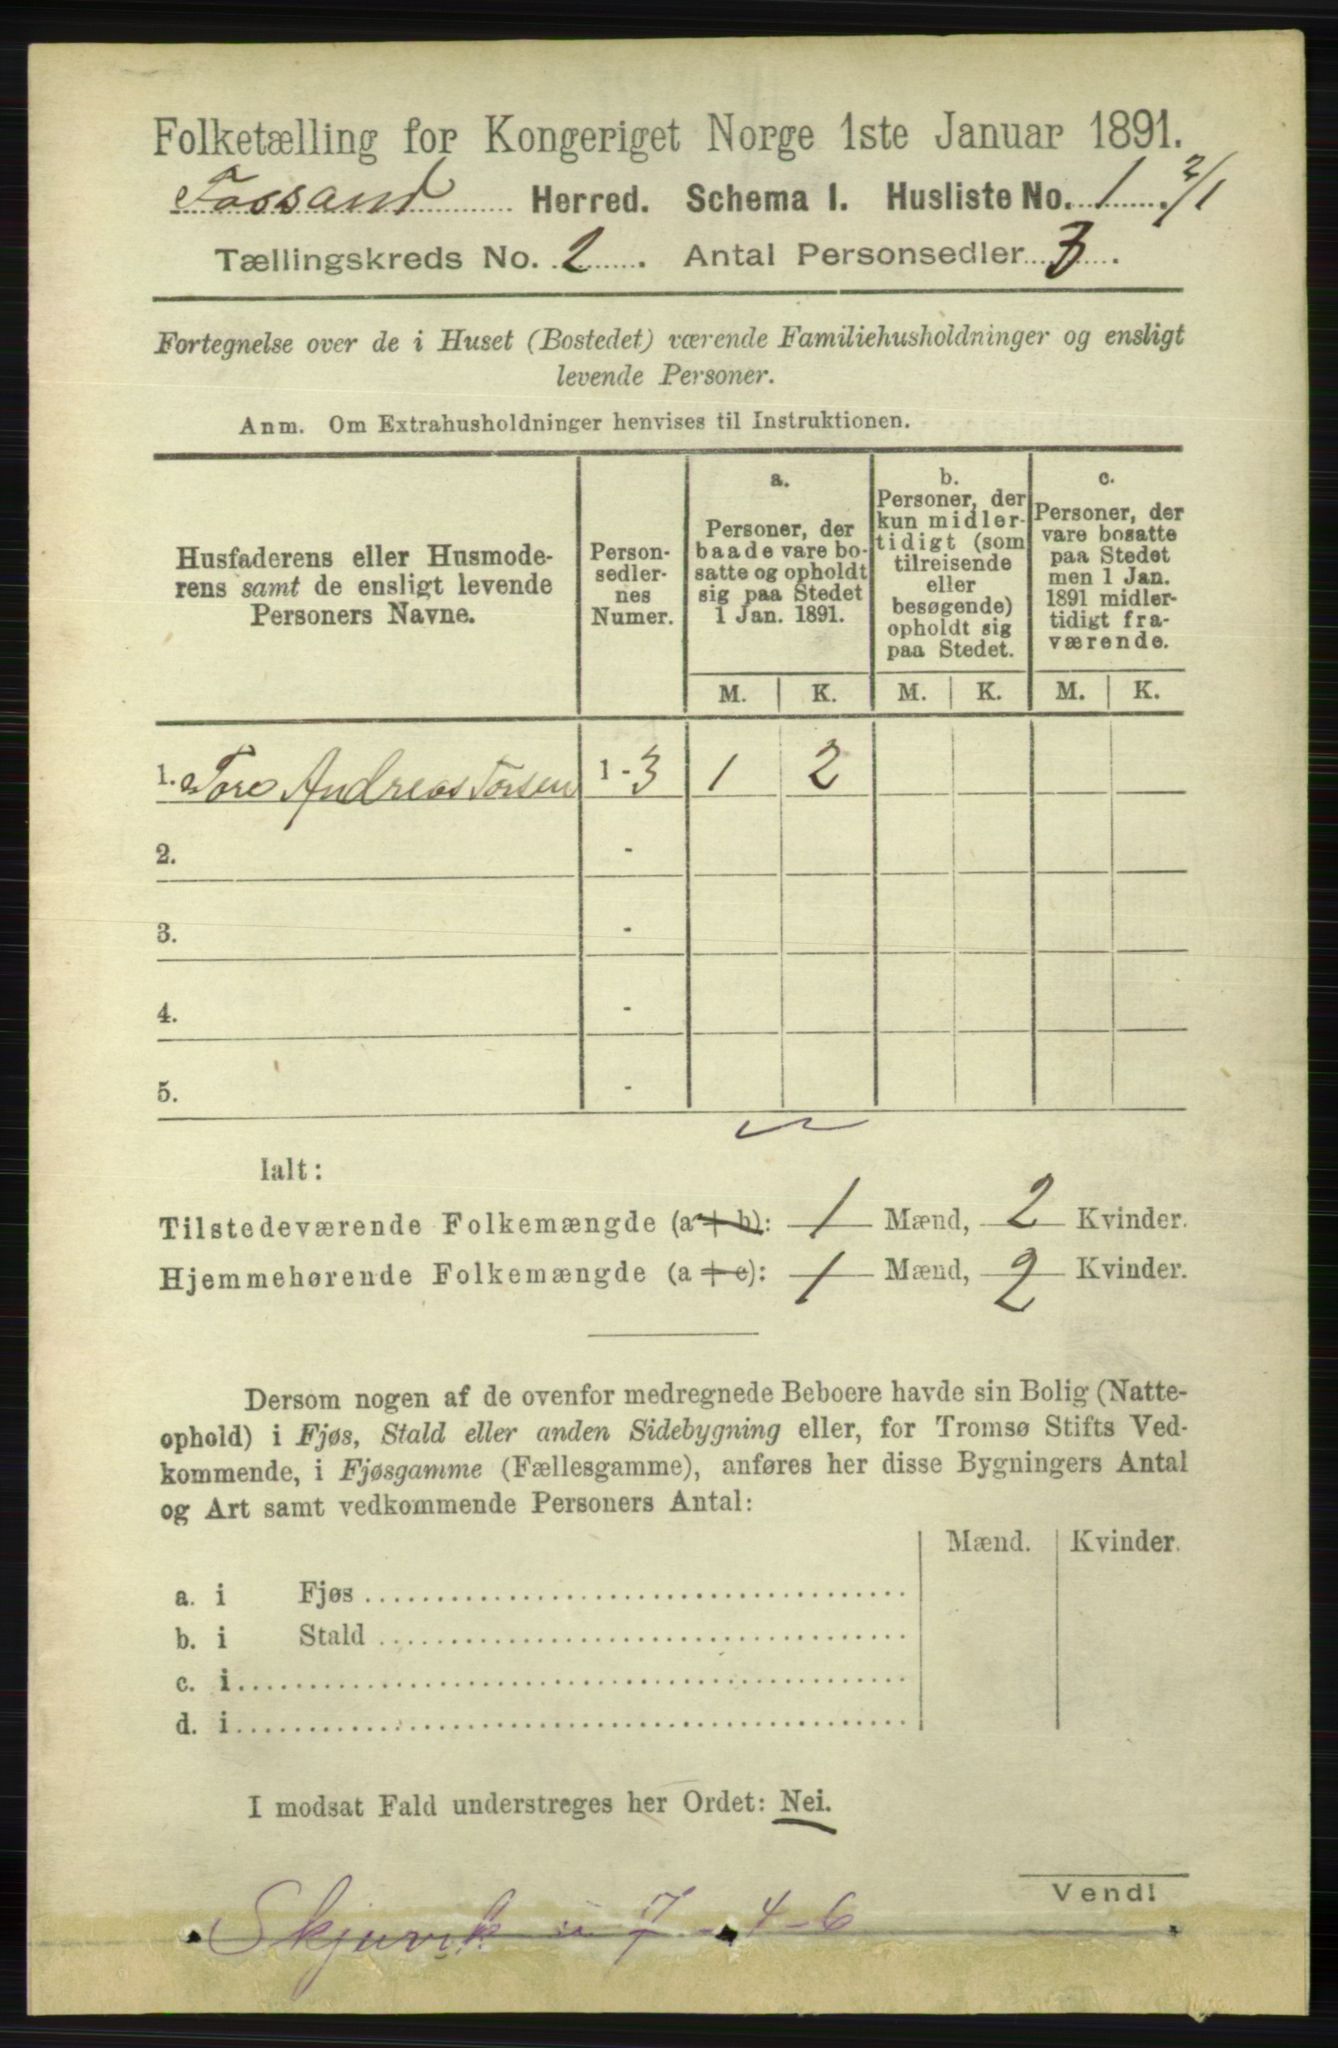 Folketælling for Kongeriget Norge 1ste Januar 1891.
Fossand Herred. Schema I. Husliste No. 1 2/1
Tællingskreds No. 2. Antal Personsedler 3.
Fortegnelse over de i Huset (Bostedet) værende Familiehusholdninger og ensligt
levende Personer.
Anm. Om Extrahusholdninger henvises til Instruktionen.
Husfaderens eller Husmode-
rens samt de ensligt levende
Personers Navne.
Person-
sedler-
nes
Numer.
a.
Personer, der
baade vare bo-
satte og opholdt
sig paa Stedet
1 Jan. 1891.
b.
Personer, der
kun midler-
tidigt (som
tilreisende
eller
besøgende)
opholdt sig
paa Stedet.
c.
Personer, der
vare bosatte
paa Stedet
men 1 Jan.
1891 midler-
tidigt fra-
værende.
M. K. M. K. M. K.
1. Tore Andreas Torsen 1 - 3 1 2
2. -
3. -
4. -
5. -
Ialt:
Tilstedeværende Folkemængde (a + b): 1 Mænd, 2 Kvinder.
Hjemmehørende Folkemængde (a + c): 1 Mænd, 2 Kvinder.
Dersom nogen af de ovenfor medregnede Beboere havde sin Bolig (Natte-
ophold) i Fjøs, Stald eller anden Sidebygning eller, for Tromsø Stifts Ved-
kommende, i Fjøsgamme (Fællesgamme), anføres her disse Bygningers Antal
og Art samt vedkommende Personers Antal:
Mænd. Kvinder.
a. i Fjøs
b. i Stald
c. i
d. i
I modsat Fald understreges her Ordet: Nei.
Vend!
Skjurvik " 7 - 4 - 6